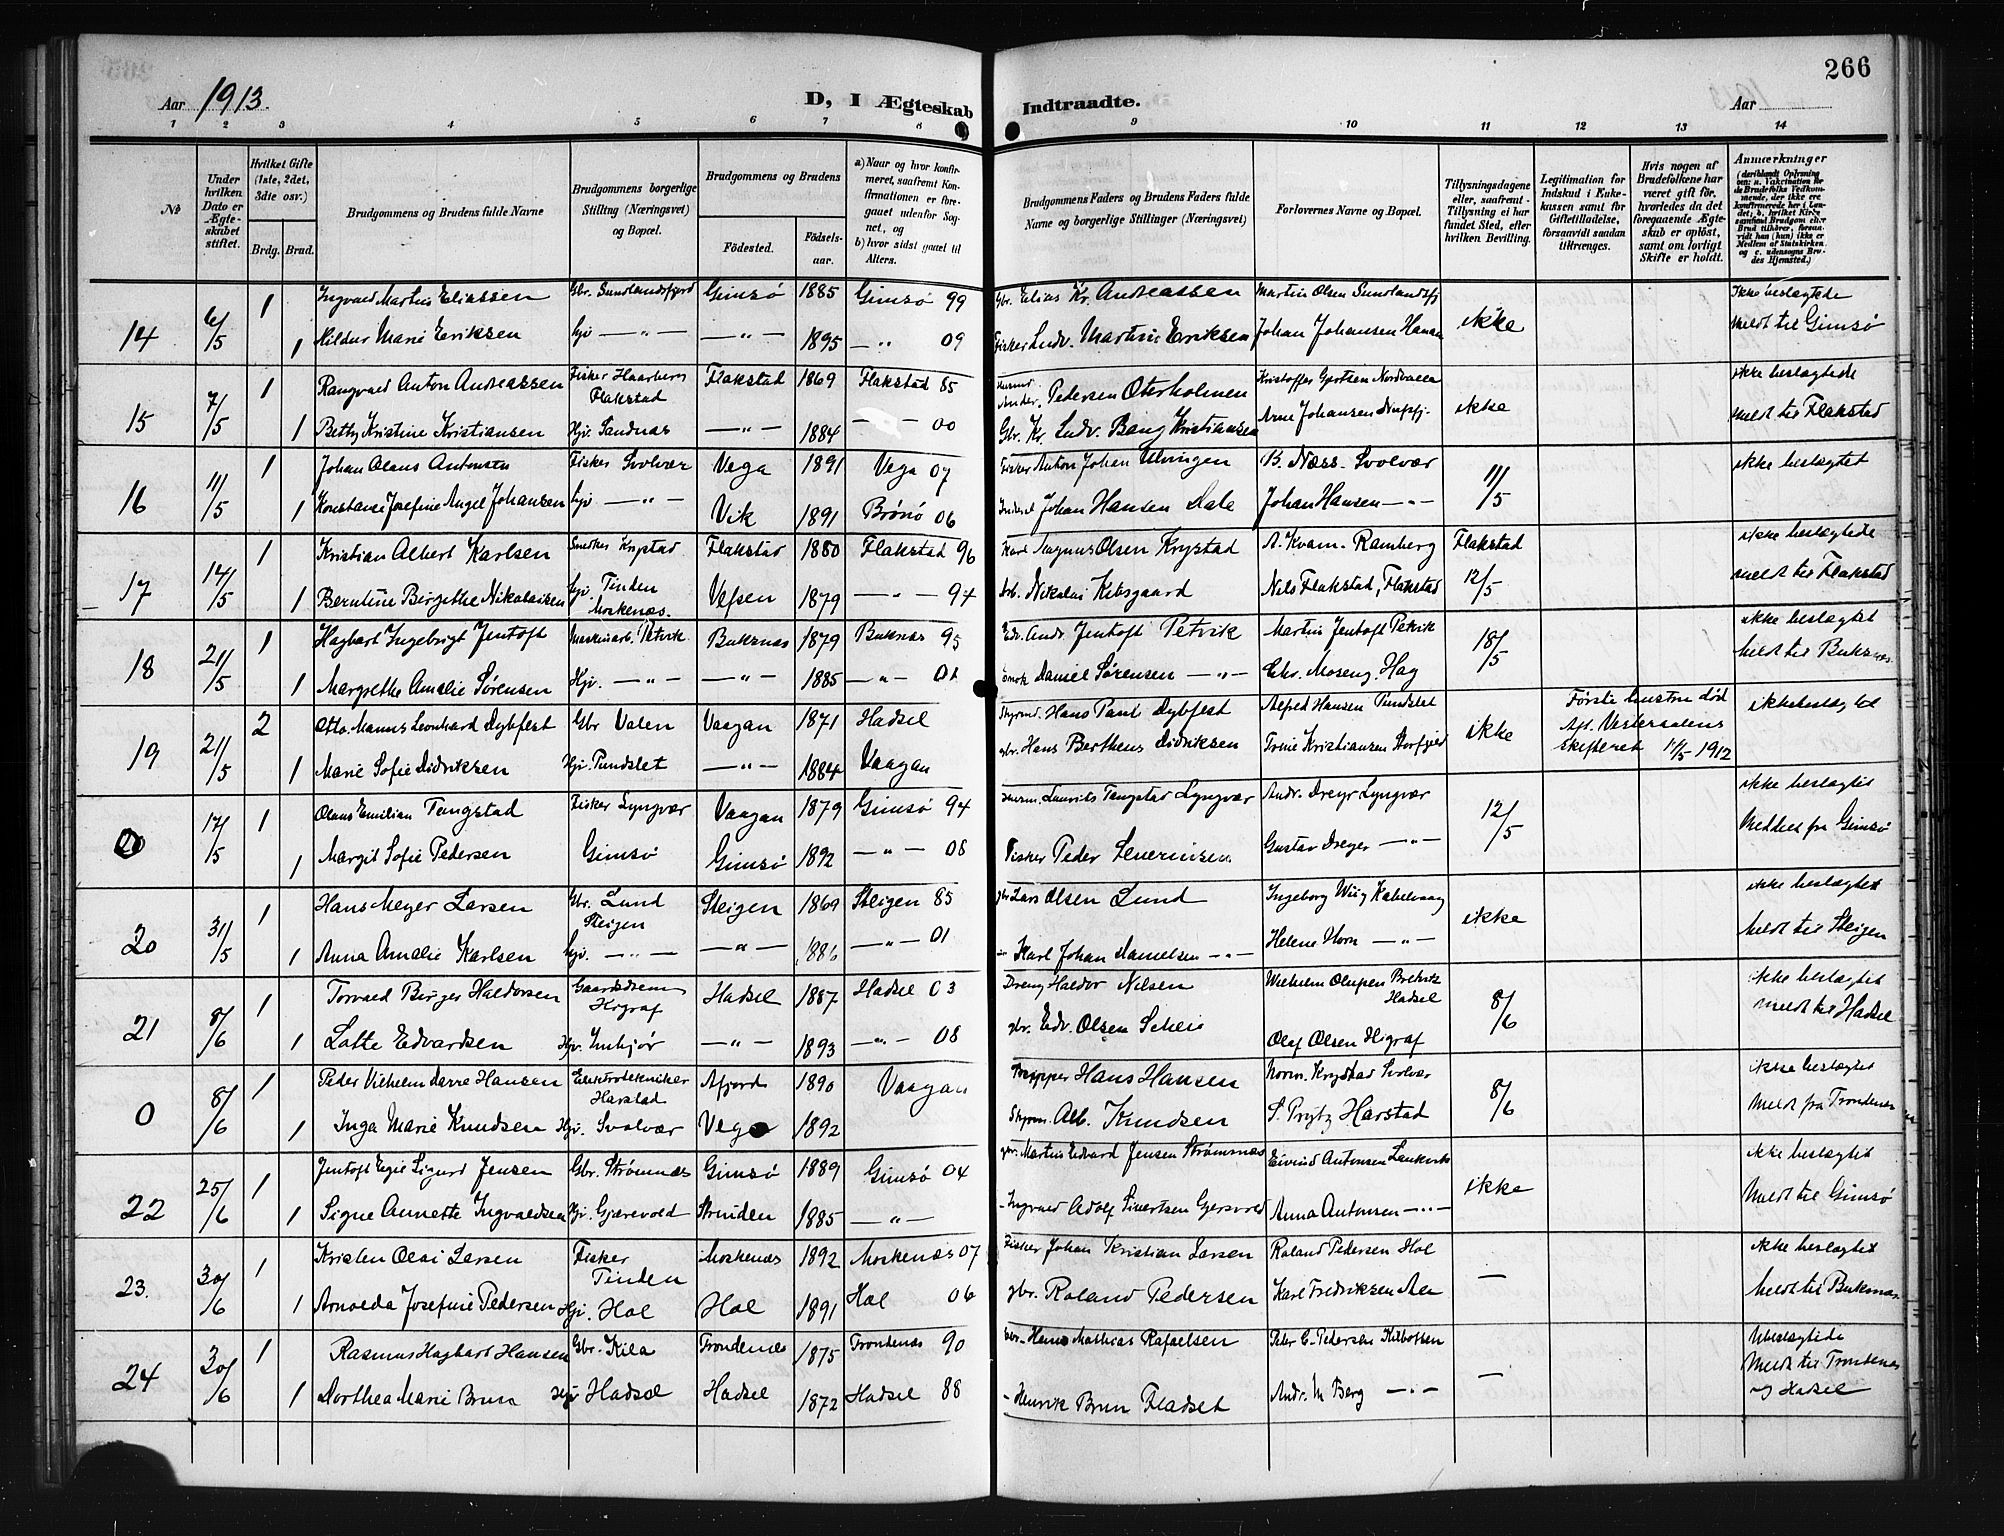 266
Aar 1913.
D, I Ægteskab Indtraadte.
Aar
1 2 3 4 5 6 7 8 9 10 11 12 13 14
№
Under hvilken Dato er Ægteskabet stiftet.
Hvilket Gifte (1ste, 2det, 3die osv.)
Brdg. Brud.
Brudgommens og Brudens fulde Navne
Brudgommens borgerlige Stilling (Næringsvei) og Bopæl.
Brudgommens og Brudens
Fødested. Fødselsaar.
a) Naar og hvor konfirmeret, saafremt Konfirmationen er foregaaet udenfor Sognet, og b) hvor sidst gaaet til Alters.
Brudgommens Faders og Brudens Faders fulde Navne og borgerlige Stillinger (Næringsvei)
Forlovernes Navne og Bopæl.
Tillysningsdagene eller, saafremt Tillysning ei har fundet Sted, efter hvilken Bevilling.
Legitimation for Indskud i Enkekassen samt for Giftetilladelse, forsaavidt saadan tiltrænges.
Hvis nogen af Brudefolkene har været gift før, hvorledes da det foregaaende Ægteskab er opløst, samt om lovligt Skifte er holdt.
Anmærkninger
14 6/5 1 Ingvald Martin Eliassen Gbr. Sundlandsfjord Gimsø 1885 Gimsø 99 Gbr. Elias Kr. Andreassen Martin Olsen Sundlandsfj ikke Ikke beslægtede
1 Hildur Marie Eriksen Hjv — " — — " — 1895 — " 09 Fisker Ludv. Martin Eriksen Johan Johansen Hanan meldt til Gimsø
15 7/5 1 Rangvald Anton Andreassen Fisker Flakstad Flakstad 1869 Flakstad 85 Ander. Pedersen Oterholmen Kristoffer ikke ikke beslægtede
1 Betty Kristine Kristiansen Hjv Sandnæs — " — 1884 — — 00 Gbr. Kr. Ludv. Bang Kristiansen Arne Johansen meldt til Flakstad
16 11/5 1 Johan Olaus Antonsen Fisker Svolvær Vega 1891 Vega 07 Fisker Anton Johan Ulvingen B. Næss - Svolvær 11/5 ikke beslægtet
1 Konstanse Josefine Angel Johansen Hjv — " — Vik 1891 Brønø 06 Johan Hansen Dale Johan Hansen — " —
17 14/5 1 Kristian Albert Karlsen Krystad Flakstad 1880 Flakstad 96 Magnus Olsen Krystad A. Kvam - Ramberg Flakstad ikke beslægtede
1 Berntine Bergithe Nikolaisen Hjv. Tinden Moskenæs. Vefsen 1879 — " — 94 Nikolai Kibsgaard Nils Flakstad, Flakstad 12/5 meldt til Flakstad
18 21/5 1 Hagbart Ingebrigt Jentoft Maskinarb. Petvik Buksnæs 1879 Buksnæs 95 Andr. Jentoft Petvik Martin Jentoft Petvik 18/5 ikke beslægtet
1 Margrethe Amalie Sørensen Hjv. — " — — " — 1885 — " — 01 Daniel Sørensen — " — Chr. Moseng Hag Meldt til Buksnæs
19 21/5 2 Otto Manus Leonhard Dybfest Gbr Valen Vaagan 1871 Hadsel Skyrmd. Hans Paul Dybfest Alfred Hansen Pundslet ikke Første hustru død Afl. Vesteraalens skifteret 11/5 1912 ikke beslægtet
1 Marie Sofie Didriksen Hjv. Pundslet — " — 1884 Vaagan gbr. Hans Berthens Didriksen Trine Kristiansen Storfjeld
0 17/5 1 Olaus Emilian Tengstad Fisker Lyngvær Vaagan 1879 Gimsø 94 Laurits Tangstad Lyngvær Andr. Dreyr Lyngvær 12/5 ikke beslægtet
1 Margit Sofie Pedersen Gimsø Gimsø 1892 — " — 08 Fisker Peder Severinsen Gustav Dreyer — " — Meddelt fra Gimsø
20 31/5 1 Hans Meyer Larsen Gbr. Lund Steigen Steigen 1869 Steigen 85 gbr Lars Olsen Lund Ingeborg Wiig Kabelvaag ikke ikke beslægtet
1 Anna Amalie Karlsen Hjv. — " — — " — 1886 — " — 01 — Karl Johan Danielsen — " — Helene Horn — " — Meldt til Steigen
21 8/6 1 Torvald Birger Haldorsen Gaardsdreng Higraf Hadsel 1887 Hadsel 03 Dreng Haldor Nilsen Wilhelm Olufsen Brekvik Hadsel 8/6 ikke beslægtet
1 Lotte Edvardsen Hjv. — " — 1893 — " — 08 gbr. Edv. Olsen Scheie Olaf Olsen Higraf meldt til Hadsel
0 8/6 1 Peder Vilhelm Hansen Elektrotekniker Harstad Afjord 1890 Vaagan Skipper Hans Hansen Norm. Krystad Svolvær 8/6 ikke beslægtet
1 Inga Marie Knudsen Hjv. Svolvær Vega 1892 Skyrm. Alb. Knudsen S. Prytz Harstad Meldt fra Trondenæs
22 25/6 1 Jentoft Egil Sigurd Jensen Gbr. Strømnæs Gimsø 1889 Gimsø 04 gbr. Martin Edvard Jensen Strømsnæs Eivind Antonsen ikke ikke beslægtet
1 Signe Annette Ingvaldsen Hjv. Gjærevold 1885 — " — — Ingvald Adolf Sivertsen Anna Antonsen — " — Meldt til Gimsø
23. 30/6 1 Kristen Olai Larsen Fisker Tinden Moskenæs 1892 Moskenæs 07 Fisker Johan Kristian Larsen Roland Pedersen Hol — ikke beslægtet
1 Arnolda Josefine Pedersen Hjv. Hol Hol 1891 Hol 06 gbr. Roland Pedersen Karl Fredriksen Meldt til Buksnæs
24 30/6 1 Rasmus Hagbart Hansen Gbr. Kila Trondenæs 1875 Trondenæs 90 Gbr. Hans Mathias Rafaelsen Peder C. Pedersen Kilbotten — Ubeslægtede
1 Dorthea Marie Brun Hjv Hadsel Hadsel 1872 Hadsel 88 — Henrik Brun Fladset Andr. M Berg — " — Meldt til Trondenæs og Hadsel